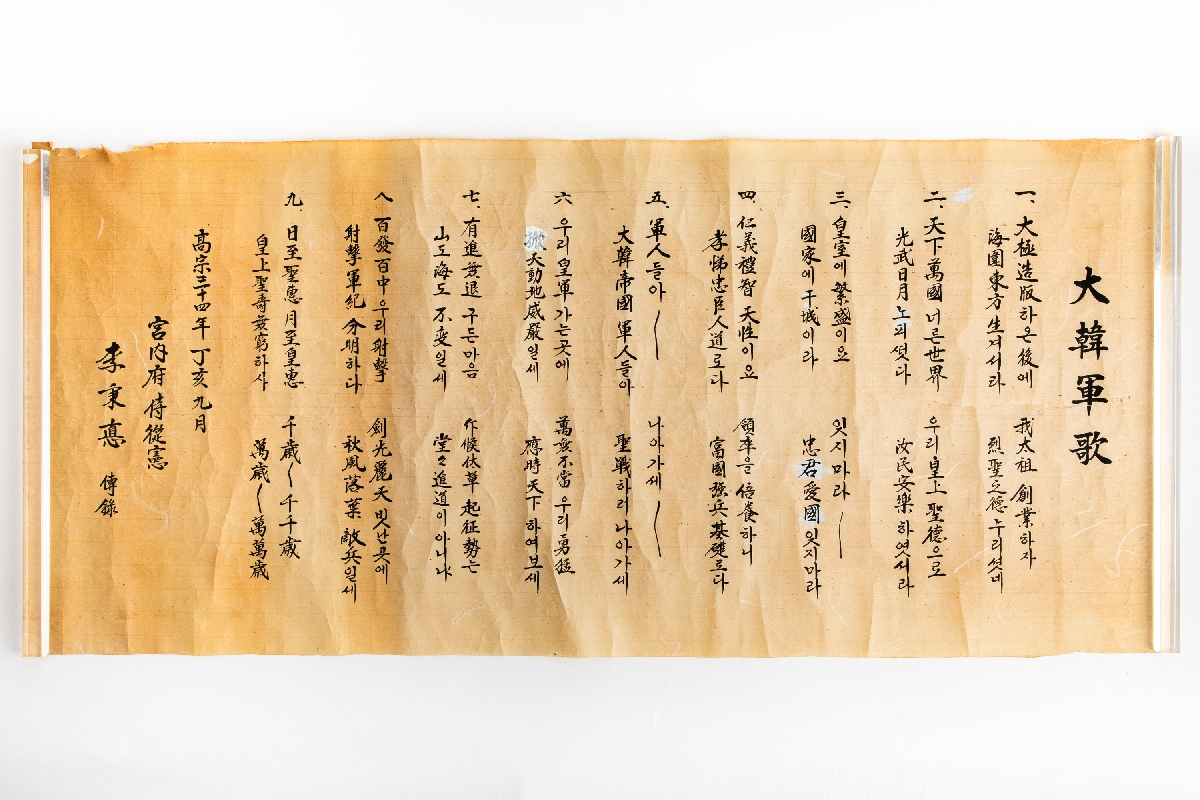 大韓軍歌
一、大極造版하온後에 我太祖 創業하자
海圍東方生겨서라 烈聖之德누리셧네
二、天下萬國 너른世界 우리皇上 聖德으로
光武日月 노피떳다 汝民安樂 하엿서라
三、皇室에 繁盛이요 잇지마라 ㅡ
國家에 干城이라 忠君愛國 잇지마라
四、仁義禮智 天性이요 領率을 倍養하니
孝悌忠臣人道로다 富國强兵基礎로다
五、軍人들아 ㅡ 나아가세 ㅡ
大韓帝國 軍人들아 聖戰하러 나아가세
六 우리皇軍 가는곳에 萬夫不當 우리勇猛
天動地威嚴일세 應時天下 하여보세
七、有進無退 구든마음 作候伏草 起征勢는
山도海도 不變일세 堂々進道이아니냐
八 百發百中 우리射擊 劍光麗天 빗난곳에
射擊軍紀 分明하다 秋風落葉 敵兵일세
九、日至聖恩 月至皇恩 千歲ㅡ千千歲
皇上聖壽無窮하사 萬歲ㅡ萬萬歲
高宗三十四年 丁亥九月
宮內府侍從憲
李秉憙 傳錄